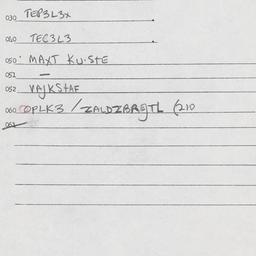 030 TEP3L3X
040 TEC3L3
050 MAXT KU·STE
051 —
052 VAJKSTAF
060 OPLK3 / ZALDZBREJTL (210
061